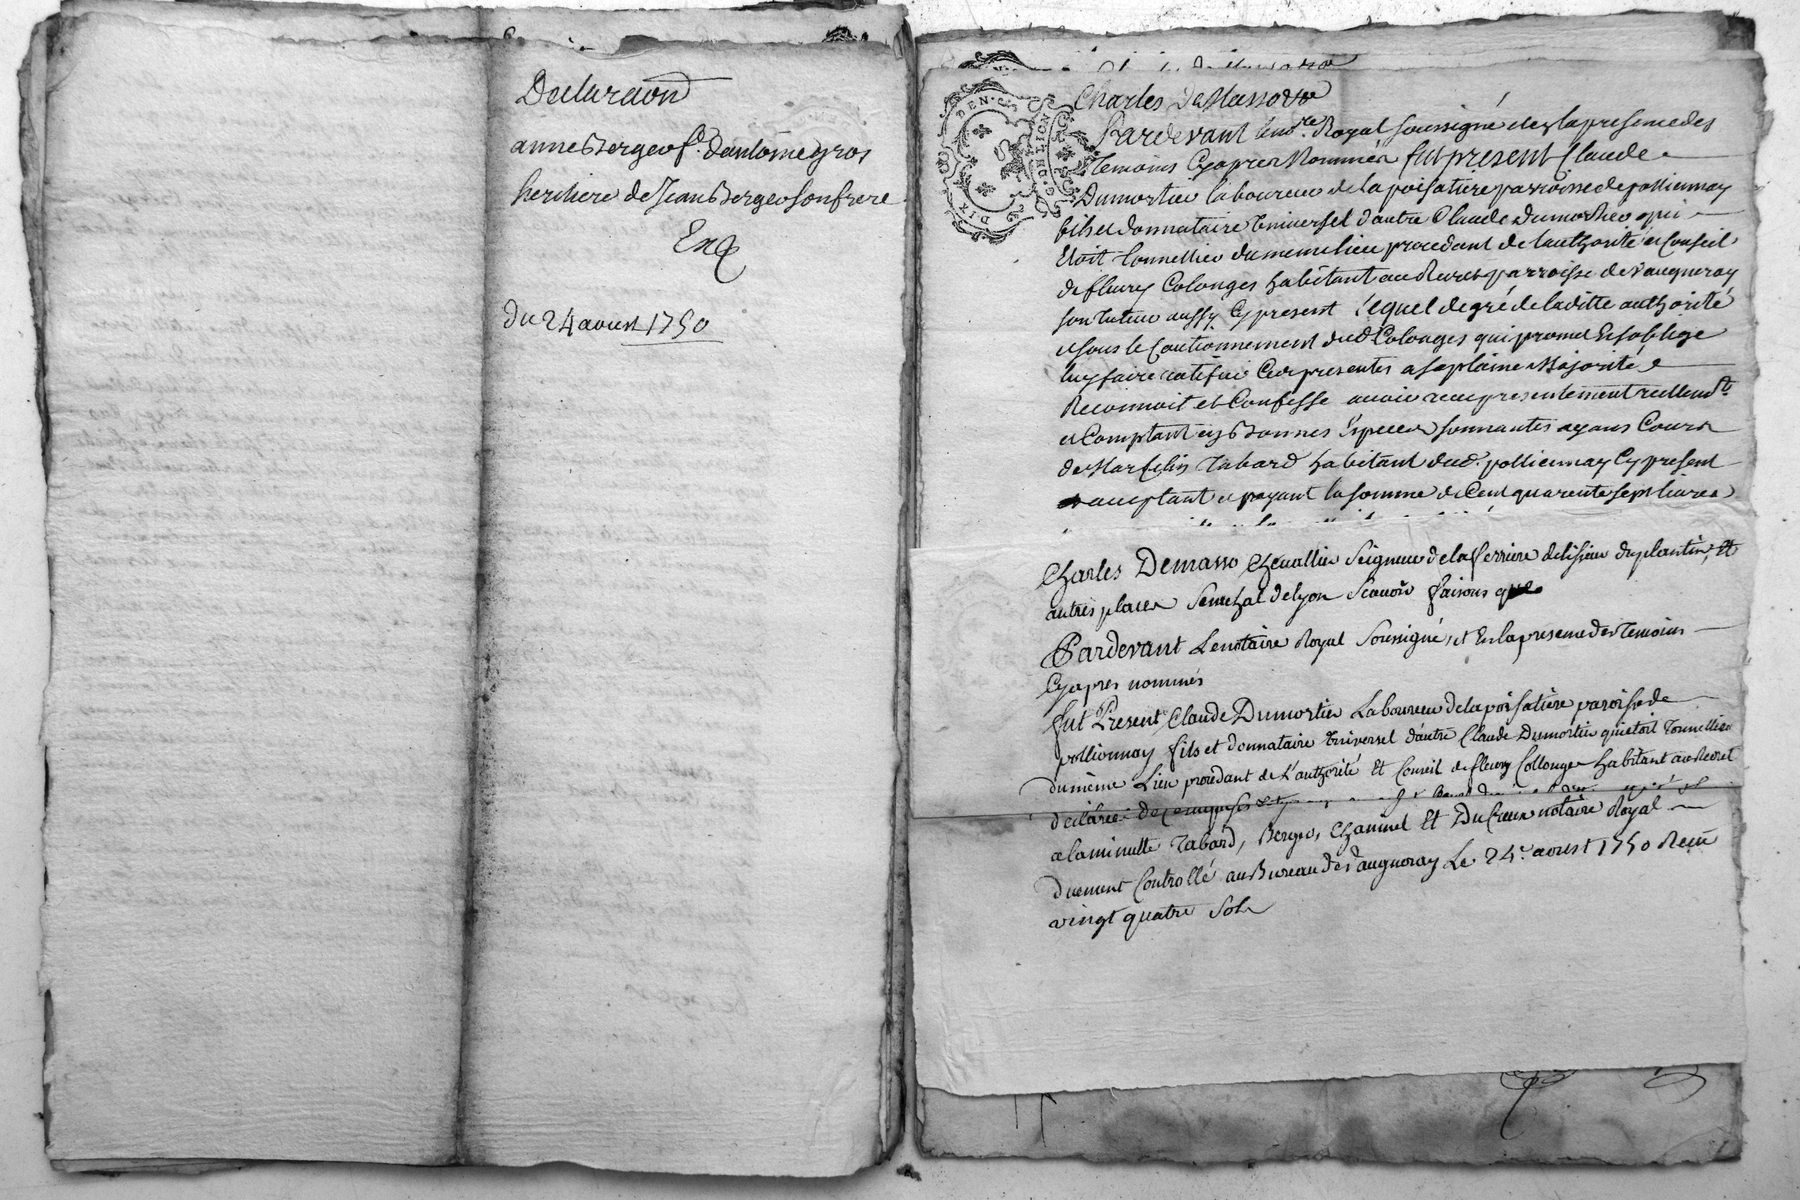 Declaraon
anne Bergeo f.e dantoine gros
heritiere de Jean Bergeo son frere
Exp
du 24 aoust 1750
GEN. DE LION
DIX
Charles De Masso
Pardevant le no.re Royal soussigné et en la presence des
temoins Cyapres Nommés fut present Claude
Dumortier laboureur de la poisatiere parroisse de pollionnay
fils et donnataire Universel dautre Claude Dumortier qui
Etoit tonnellier du meme lieu procedant de lauthorité et Conseil
de fleury Colonges habitant au Recret parroisse de Vaugneray
son tuteur aussy Cy present lequel de gré de laditte authorité
et sous le Cautionnement dud. Colonges qui promet Et soblige
luy faire ratifier Ces presentes a sa plaine Majorité
Reconnoit et Confesse avoir receu presentement reellem.t
et Comptant en Bonnes Especes sonnantes ayans Cours
de Marcelin tabard habitant dud. pollionnay Cy present
acceptant et payant la somme de Cent quarente sept livres
Charles Demasso Chevallier Seigneur de la ferriere delissieu duplantin, Et
autres places Senechal de lyon Scavoir faisons que
Pardevant Le notaire Royal Soussigné, et En la presence des temoins
Cyapres nommés
fut Present Claude Dumortier Laboureur de la poisatiere paroisse de
pollionnay fils et donnataire Universel d'autre Claude Dumortier qui etoit tonnellier
du même Lieu procedant de L'authorité Et Conseil de fleury Collonge habitant au Recret
a la minutte Tabard, Bergeo, Chanuel Et DuCreux notaire Royal
Duement Controllé au Bureau de Vaugneray Le 24.e aoust 1750 Receu
vingt quatre Sols